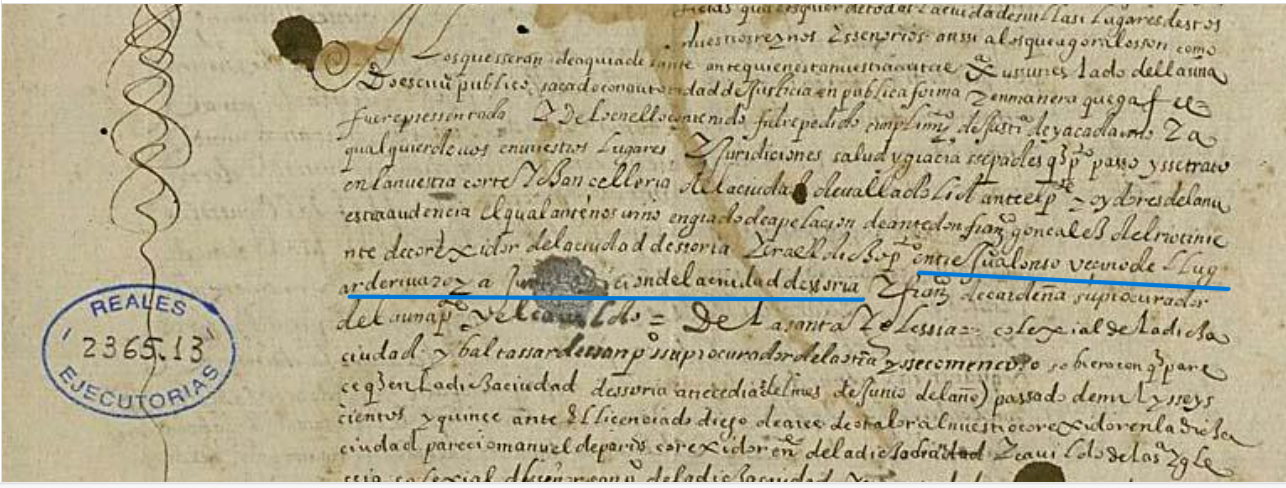 ticias qualesquier de todas la ciudades villas i lugares destos
nuestros reynos y ssenorios anssi a los que agora lo sson como
a los que sseran de aqui adelante ante quien esta nuestra carta e
do escriu publico sacado con autoridad de justicia en publica forma y en manera que haga fee
fuere pressentada y de lo en ello contenido fuere pedido cumplimi de justi
qualquier de uos en uuestros lugares y juridiciones salud y gracia ssepades q passo y sse trato
en la nuestra corte y chancelleria de la ciudad de ualladolid ante el p y oydores de la nu
estra audencia el qual ante nos uino en grado de apelacion de ante don fran goncalez del rio tinie
nte de corexidor de la ciudad de ssoria y era el dicho p entre ju alonso vecino de l lug
ar de riuaroya ju cion de la ciudad de ssoria y fran de cardeña su procurador
de la una p y el cauildo = de la santa yglessia = colexial de la dicha
ciudad y baltassar de san p su procurador de la otra y sse comenco sobre racon q pare
ce q en la dicha ciudad de ssoria a del mes de junio del año passado de mil y sseys
cientos y quince ante el licenciado diego nuestro corexidor en la dicha
ciudad parecio manuel de paris corexidor en de la dicha ciudad y cauildo de la s ygle
ssia colexial de la dicha ciudad
REALES
2365.13
EJECUTORIAS